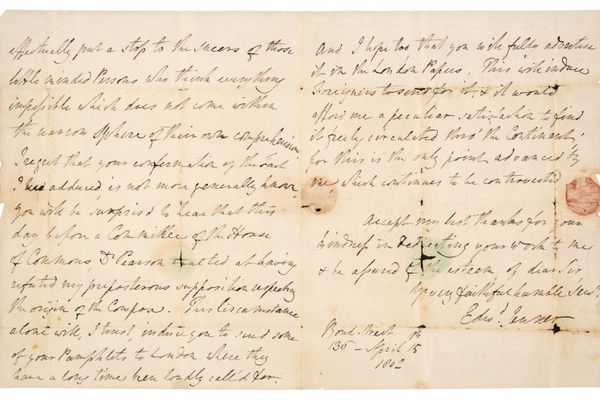 effectually put a stop to the sneers of those
little minded Persons who think everything
impossible which does not come within
the narrow Sphere of their own comprehension.
I regret that your confirmation of the Fact
I adduced is not more generally known.
you will be surprised to hear that this
day before a Committee of the House
of Commons, Dr Pearson exulted at having
refuted my preposterous supposition respecting
the origin of the Cowpox. This circumstance
alone will, I trust, induce you to send some
of your Pamphlets to London where they
have a long time been loudly call'd for.
And I hope too that you will fully advertise
it in the London Papers. This will induce
Foreigners to send for it; & it would
afford me a peculiar satisfaction to find
it freely circulated thro' the Continent;
for this is the only point advanced by
me which continues to be controverted
Accept my best thanks for your
kindness in Dedicating your Work to me
& be assured of the esteem of dear Sir
Your very faithful humble Servt
Edwd Jenner
Bond Street
130 - April 15th
1802